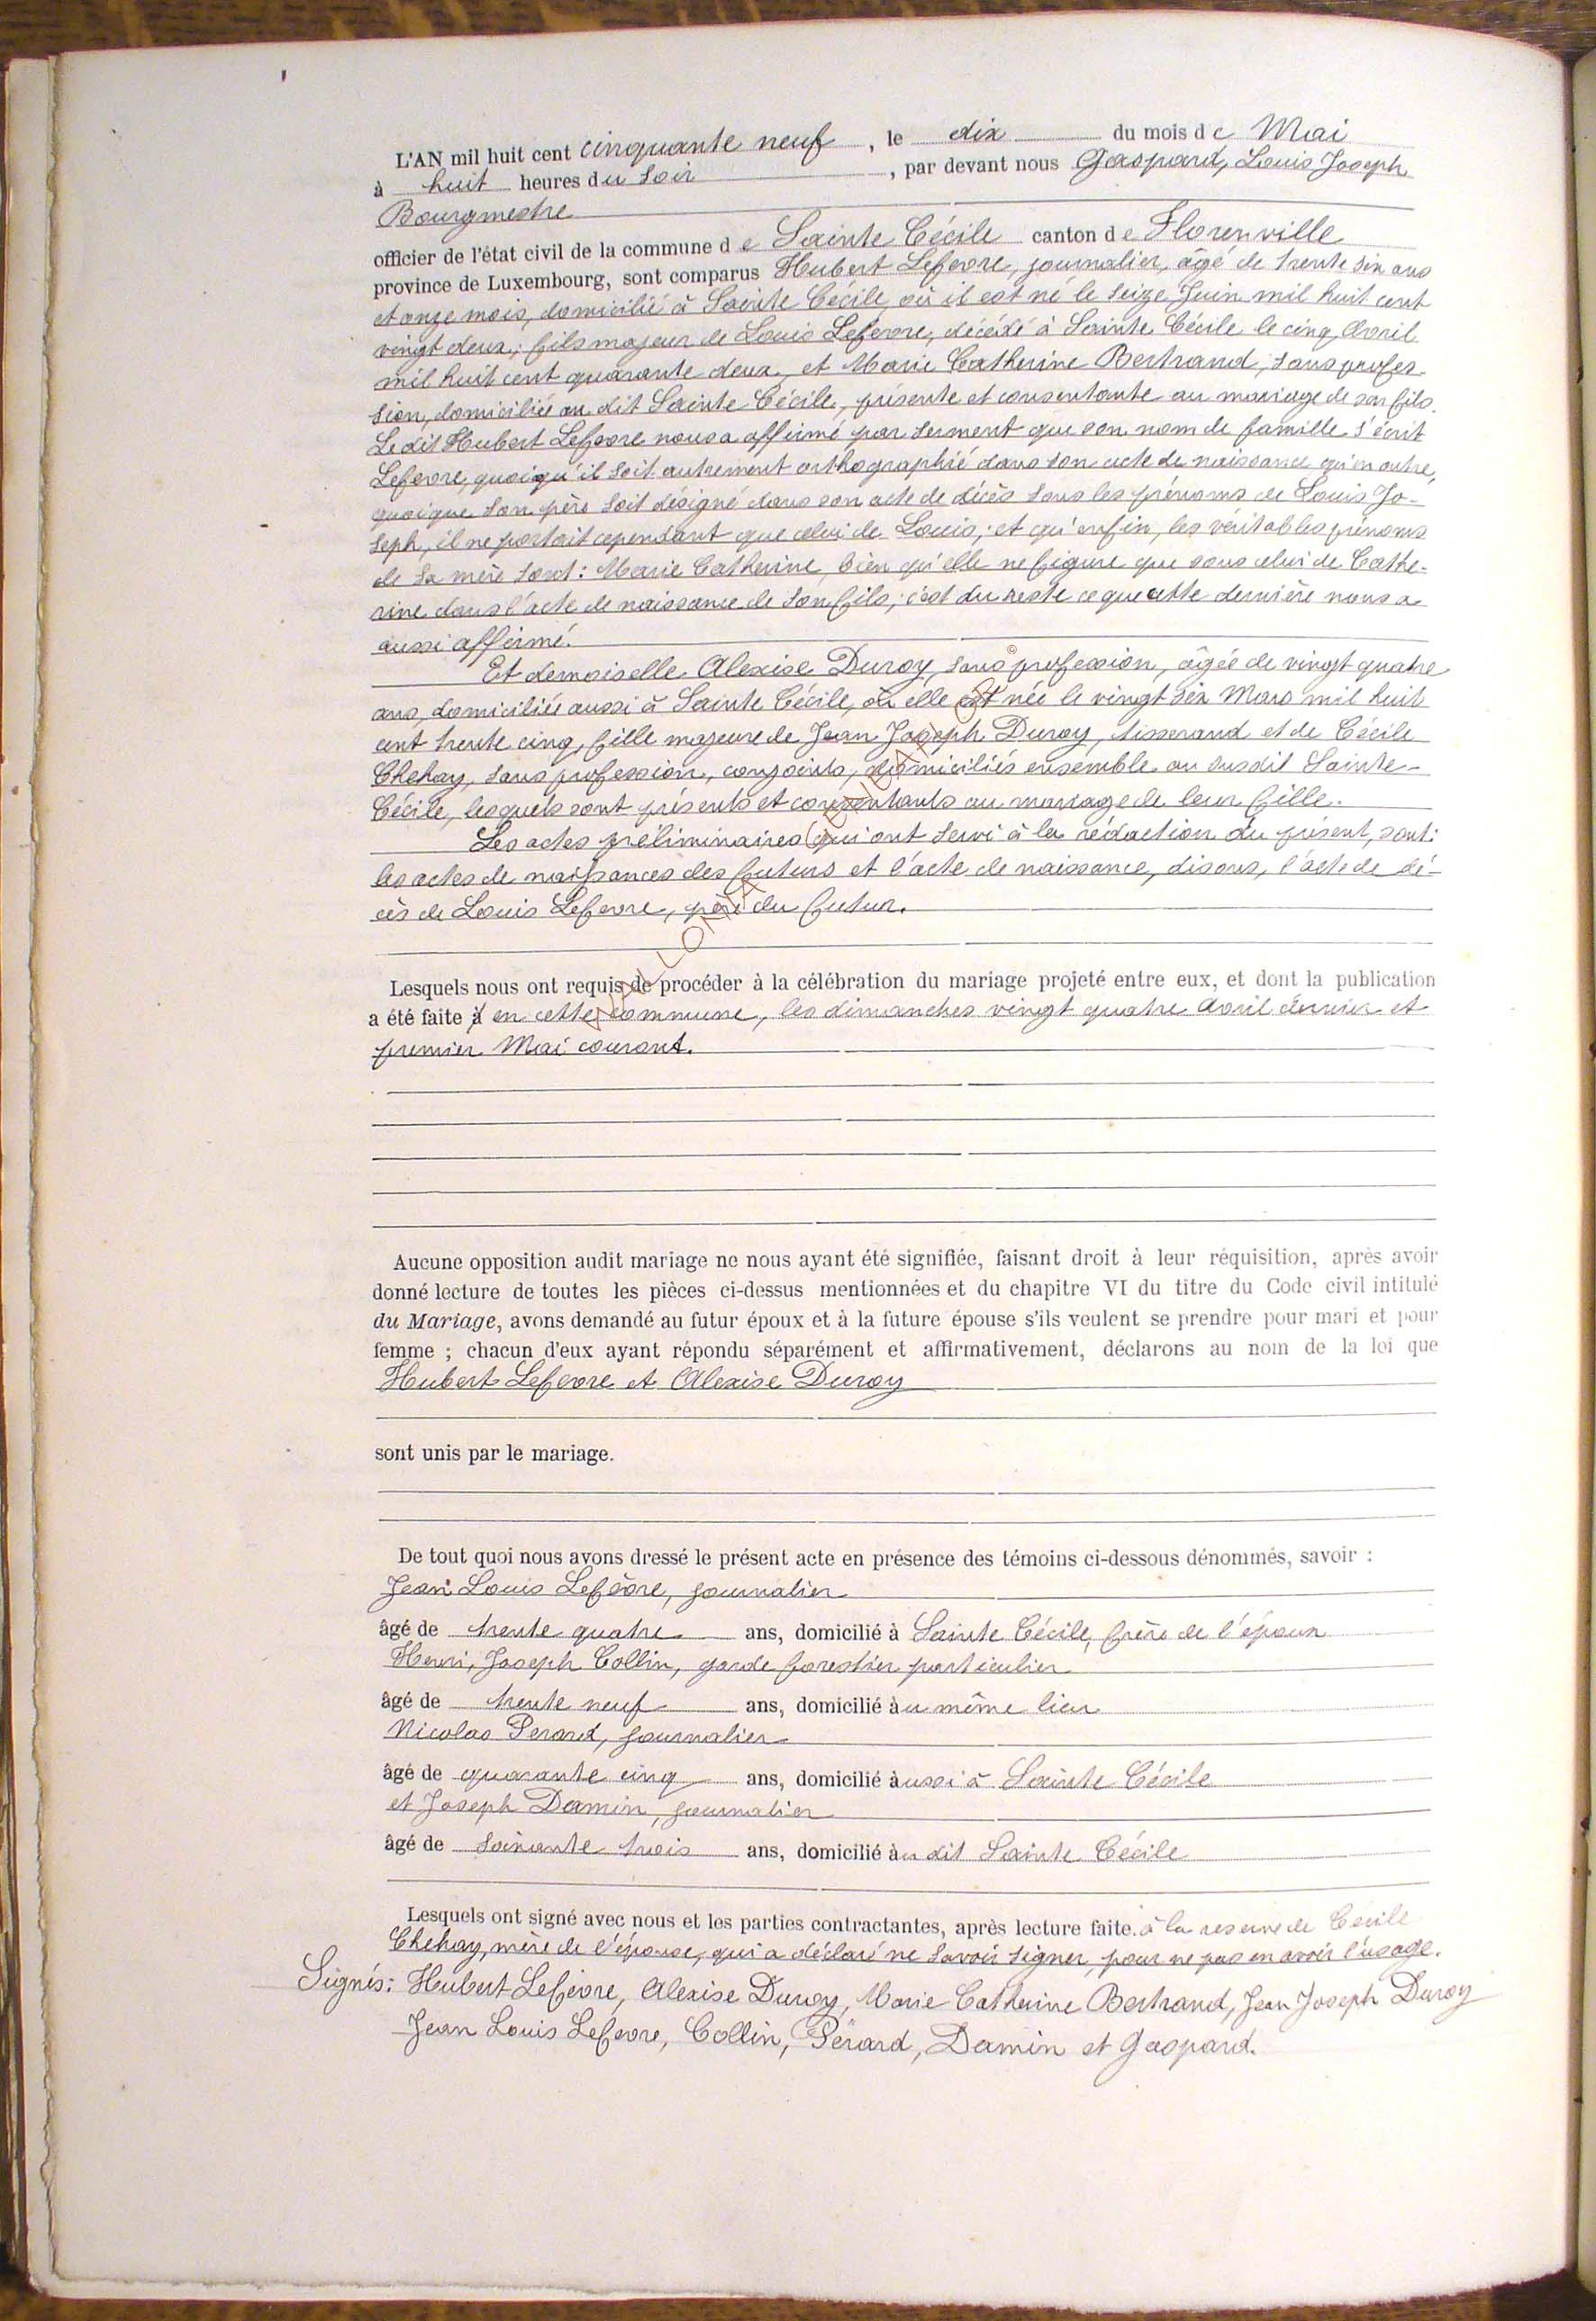 L'AN mil huit cent cinquante neuf, le dix du mois de Mai
à huit heures du soir, par devant nous Gaspard, Louis Joseph
Bourgmestre
officier de l'état civil de la commune de Sainte Cécile canton de Florenville
province de Luxembourg, sont comparus Hubert Lefevre, journalier, âgé de trente six ans
et onze mois, domicilié à Sainte Cécile, où il est né le seize Juin mil huit cent
vingt deux; fils majeur de Louis Lefevre, décédé à Sainte Cécile le cinq Avril
mil huit cent quarante deux, et Marie Catherine Bertrand, sans profes-
sion, domiciliée au dit Sainte Cécile, présente et consentante au mariage de son fils.
Le dit Hubert Lefevre nous a affirmé par serment que son nom de famille s'écrit
Lefevre, quoiqu'il soit autrement orthographié dans son acte de naissance qu'en outre,
quoique son père soit désigné dans son acte de décès sous les prénoms de Louis Jo-
seph, il ne portait cependant que celui de Louis; et qu'enfin, les véritables prénoms
de sa mère sont: Marie Catherine, bien qu'elle ne figure que sous celui de Cathe-
rine dans l'acte de naissance de son fils; c'est du reste ce que cette dernière nous a
aussi affirmé.
Et demoiselle Alexise Duroy, sans profession, âgée de vingt quatre
ans, domiciliée aussi à Sainte Cécile, où elle est née le vingt six Mars mil huit
cent trente cinq, fille majeure de Jean Joseph Duroy, tisserand et de Cécile
Chehay, sans profession, conjoints, domiciliés ensemble au susdit Sainte-
Cécile, lesquels sont présents et consentants au mariage de leur fille.
Les actes préliminaires qui ont servi à la rédaction du présent, sont:
les actes de naissances des futurs et l'acte de naissance, disons, l'acte de dé-
cès de Louis Lefevre, père du futur.
Lesquels nous ont requis de procéder à la célébration du mariage projeté entre eux, et dont la publication
a été faite à en cette commune, les dimanches vingt quatre Avril dernier et
premier Mai courant.
Aucune opposition audit mariage ne nous ayant été signifiée, faisant droit à leur réquisition, après avoir
donné lecture de toutes les pièces ci-dessus mentionnées et du chapitre VI du titre du Code civil intitulé
du Mariage, avons demandé au futur époux et à la future épouse s'ils veulent se prendre pour mari et pour
femme ; chacun d'eux ayant répondu séparément et affirmativement, déclarons au nom de la loi que
Hubert Lefevre et Alexise Duroy
sont unis par le mariage.
De tout quoi nous avons dressé le présent acte en présence des témoins ci-dessous dénommés, savoir :
Jean Louis Lefèvre, journalier
âgé de trente quatre ans, domicilié à Sainte Cécile, frère de l'époux
Henri, Joseph Collin, garde forestier particulier
âgé de trente neuf ans, domicilié au même lieu
Nicolas Perard, journalier
âgé de quarante cinq ans, domicilié aussi à Sainte Cécile
et Joseph Damin, journalier
âgé de soixante trois ans, domicilié au dit Sainte Cécile
Lesquels ont signé avec nous et les parties contractantes, après lecture faite. à la reserve de Cecile
Chehay, mère de l'épouse, qui a déclaré ne savoir signer, pour ne pas en avoir l'usage.
Signés: Hubert Lefèvre, Alexise Duroy, Marie Catherine Bertrand, Jean Joseph Duroy
Jean Louis Lefevre, Collin, Pérard, Damin et Gaspard.